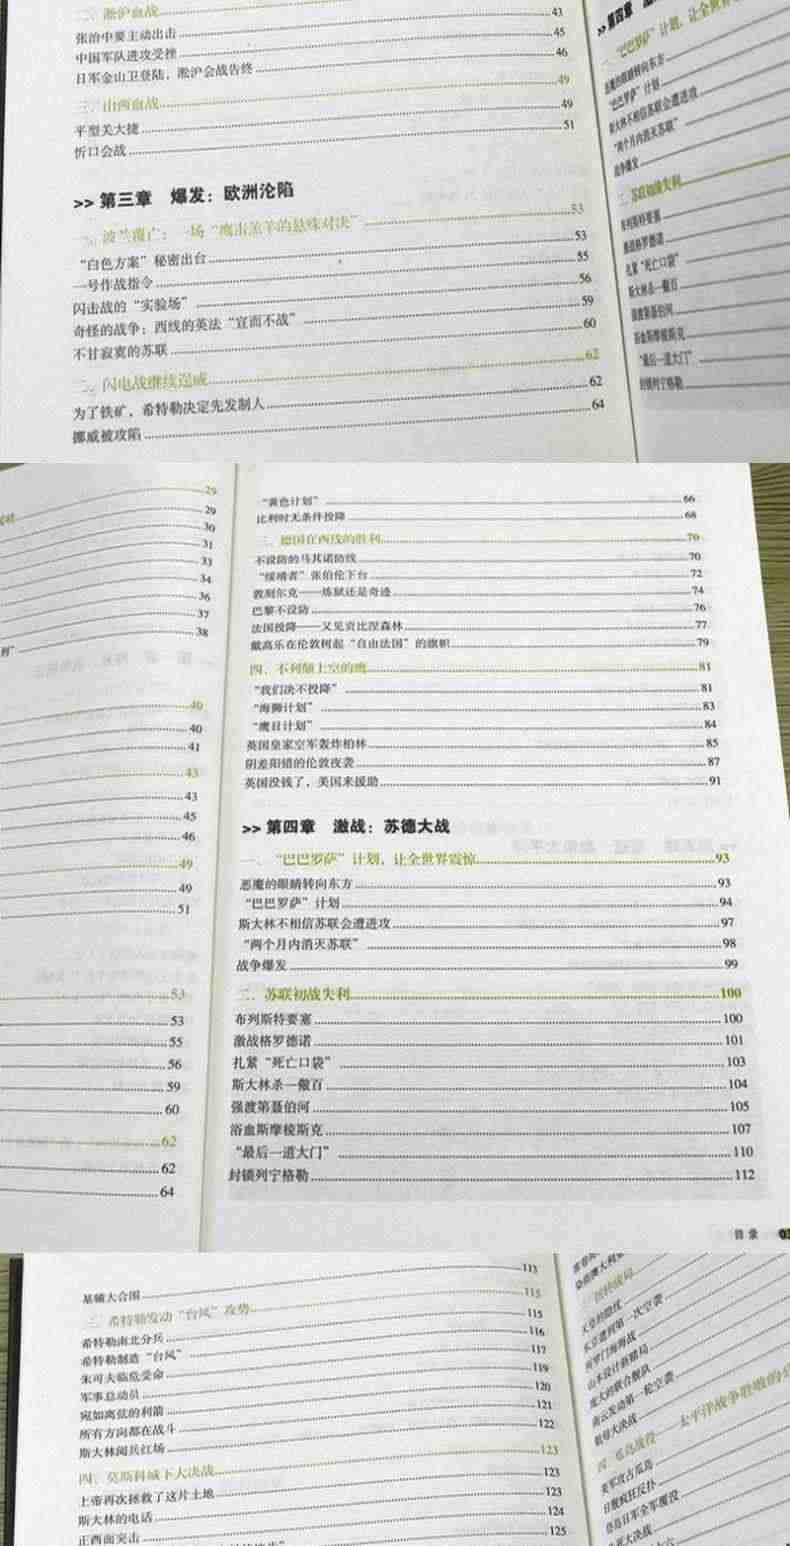 二、淞沪血战 43
张治中要主动出击 45
中国军队进攻受挫 46
日军金山卫登陆，淞沪会战告终
三、山西血战 49
平型关大捷 49
忻口会战 51
>> 第三章 爆发：欧洲沦陷
一、波兰覆亡：一场“鹰击羔羊的悬殊对决” 53
“白色方案”秘密出台 53
一号作战指令 55
闪击战的“实验场” 56
奇怪的战争：西线的英法“宣而不战” 59
不甘寂寞的苏联 60
二、闪电战继续逞威 62
为了铁矿，希特勒决定先发制人 62
挪威被攻陷 64
>> 第四章
一、“巴巴罗萨”计划，让全世界
恶魔的眼睛转向东方
“巴巴罗萨”计划
斯大林不相信苏联会遭进攻
“两个月内消灭苏联”
战争爆发
二、苏联初战失利
布列斯特要塞
激战格罗德诺
扎紧“死亡口袋”
斯大林杀一儆百
强渡第聂伯河
浴血斯摩棱斯克
“最后一道大门”
封锁列宁格勒
29
29
30
31
33
34
36
37
38
40
40
41
43
43
45
46
49
49
51
53
53
55
56
59
60
62
62
64
“黄色计划” 66
比利时无条件投降 68
三、德国在西线的胜利 70
不设防的马其诺防线 70
“绥靖者”张伯伦下台 72
敦刻尔克——炼狱还是奇迹 74
巴黎不设防 76
法国投降——又见贡比涅森林 77
戴高乐在伦敦树起“自由法国”的旗帜 79
四、不列颠上空的鹰 81
“我们决不投降” 81
“海狮计划” 83
“鹰日计划” 84
英国皇家空军轰炸柏林 85
阴差阳错的伦敦夜袭 87
英国没钱了，美国来援助 91
>> 第四章 激战：苏德大战
一、“巴巴罗萨”计划，让全世界震惊 93
恶魔的眼睛转向东方 93
“巴巴罗萨”计划 94
斯大林不相信苏联会遭进攻 97
“两个月内消灭苏联” 98
战争爆发 99
二、苏联初战失利 100
布列斯特要塞 100
激战格罗德诺 101
扎紧“死亡口袋” 103
斯大林杀一儆百 104
强渡第聂伯河 105
浴血斯摩棱斯克 107
“最后一道大门” 110
封锁列宁格勒 112
目录 03
基辅大合围 113
三、希特勒发动“台风”攻势 115
希特勒南北分兵 115
希特勒制造“台风” 116
朱可夫临危受命 117
军事总动员 119
宛如离弦的利箭 120
所有方向都在战斗 121
斯大林阅兵红场 122
四、莫斯科城下大决战 123
上帝再次拯救了这片土地 123
斯大林的电话 123
正西面突击 124
125
东京遭到第一次空袭
珊瑚海海战
山本设计新赌局
庞大的联合舰队
南云发动第一轮空袭
航母大决战
四、瓜岛战役——太平洋战争胜败的
美军攻占瓜岛
日舰疯狂反扑